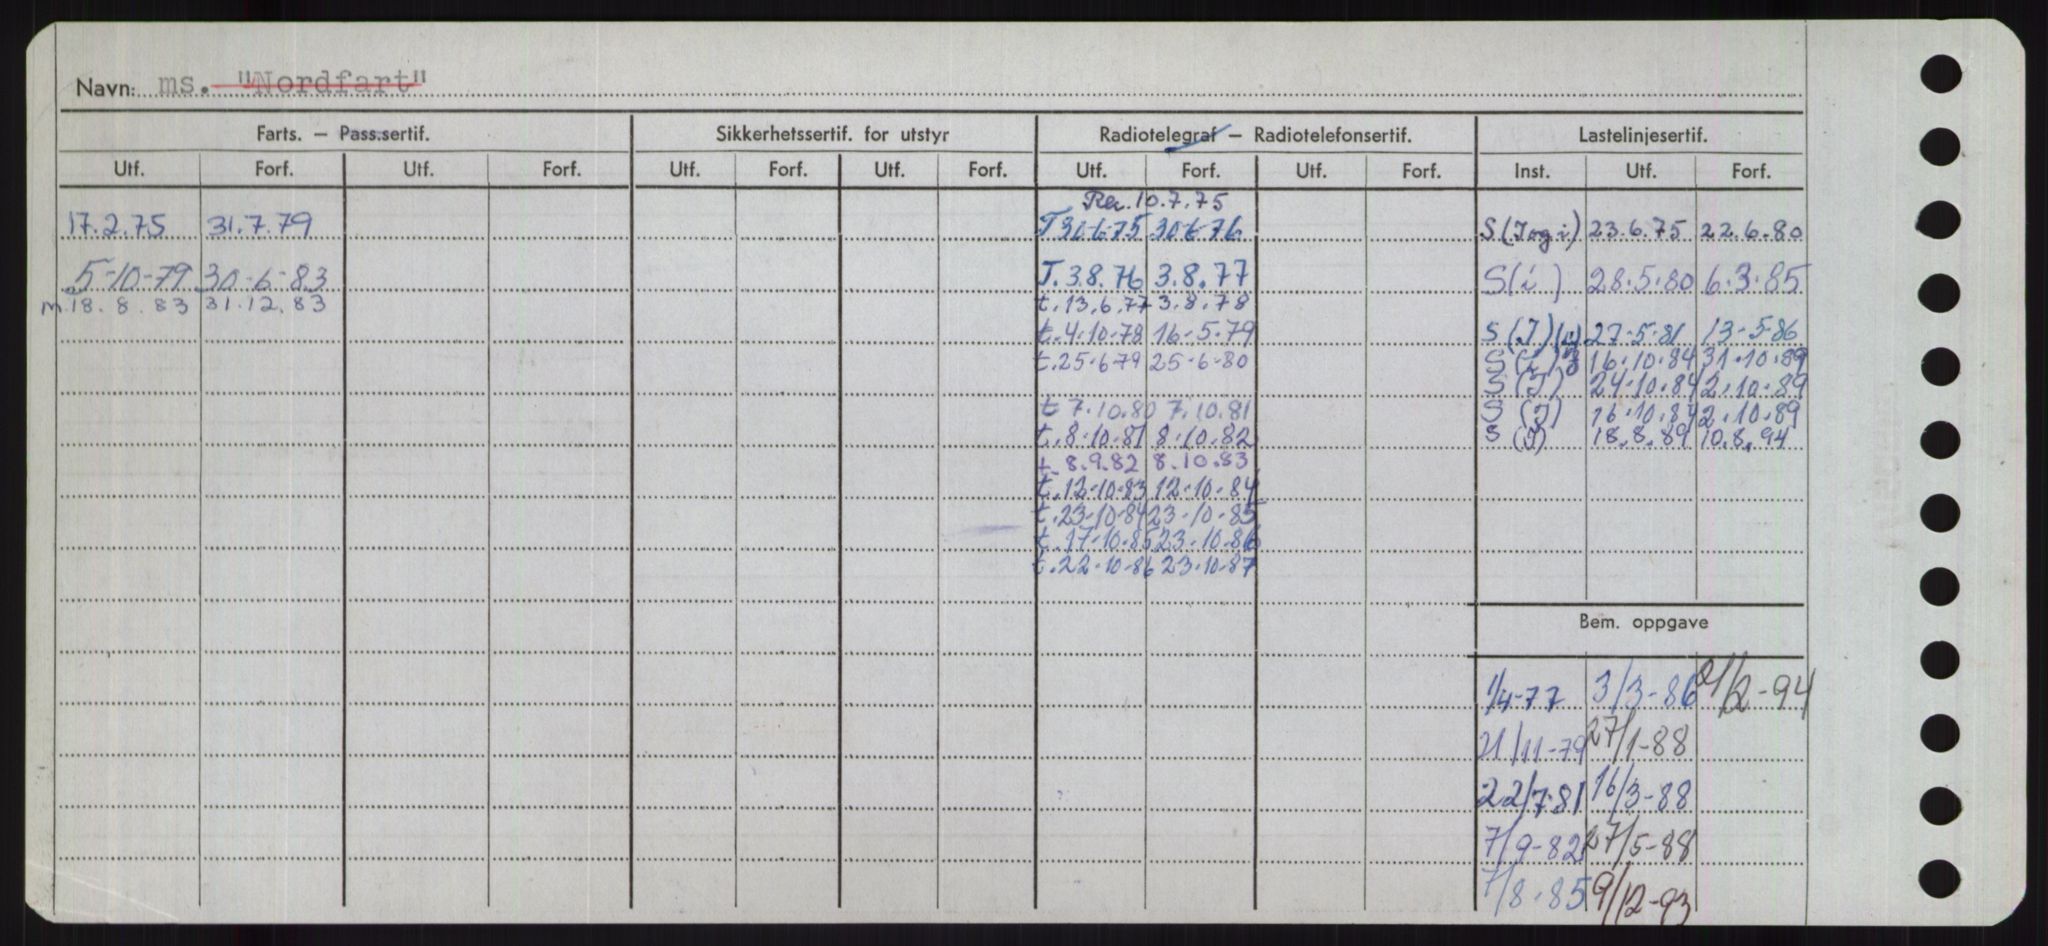 Navn: ms. "Nordfart"
Farts. — Pass.sertif. Sikkerhetssertif. for utstyr Radiotelegraf — Radiotelefonsertif. Lastelinjesertif.
Utf. Forf. Utf. Forf. Utf. Forf. Utf. Forf. Utf. Forf. Utf. Forf. Inst. Utf. Forf.
10.7.75
17.2.75 31.7.79 T 30-6-75 30-6-76 S (I og i) 23.6.75 22.6.80
5-10-79 30-6-83 T. 3.8.76 3.8.77 S (i) 28.5.80 6.3.85
m. 18.8.83 31.12.83 t. 13.6.77 3.8.78
t. 4-10-78 16-5-79 S (I) 27-5-81 13-5-86
t. 25-6-79 25-6-80 S (I) 16.10.84 31.10.89
S (I) 24.10.84 2.10.89
t 7.10.80 7.10.81 S (I) 16.10.84 2.10.89
t. 8-10-81 8-10-82 S (I) 18.8.89 10.8.94
t 8.9.82 8.10.83
t. 12-10-83 12-10-84
t. 23-10-84 23-10-85
t. 17-10-85 23-10-86
t. 22-10-86 23-10-87
Bem. oppgave
1/4-77 3/3-86 21/2-94
21/11-79 27/1-88
22/7-81 16/3-88
7/9-82 27/5-88
7/8-85 9/12-93